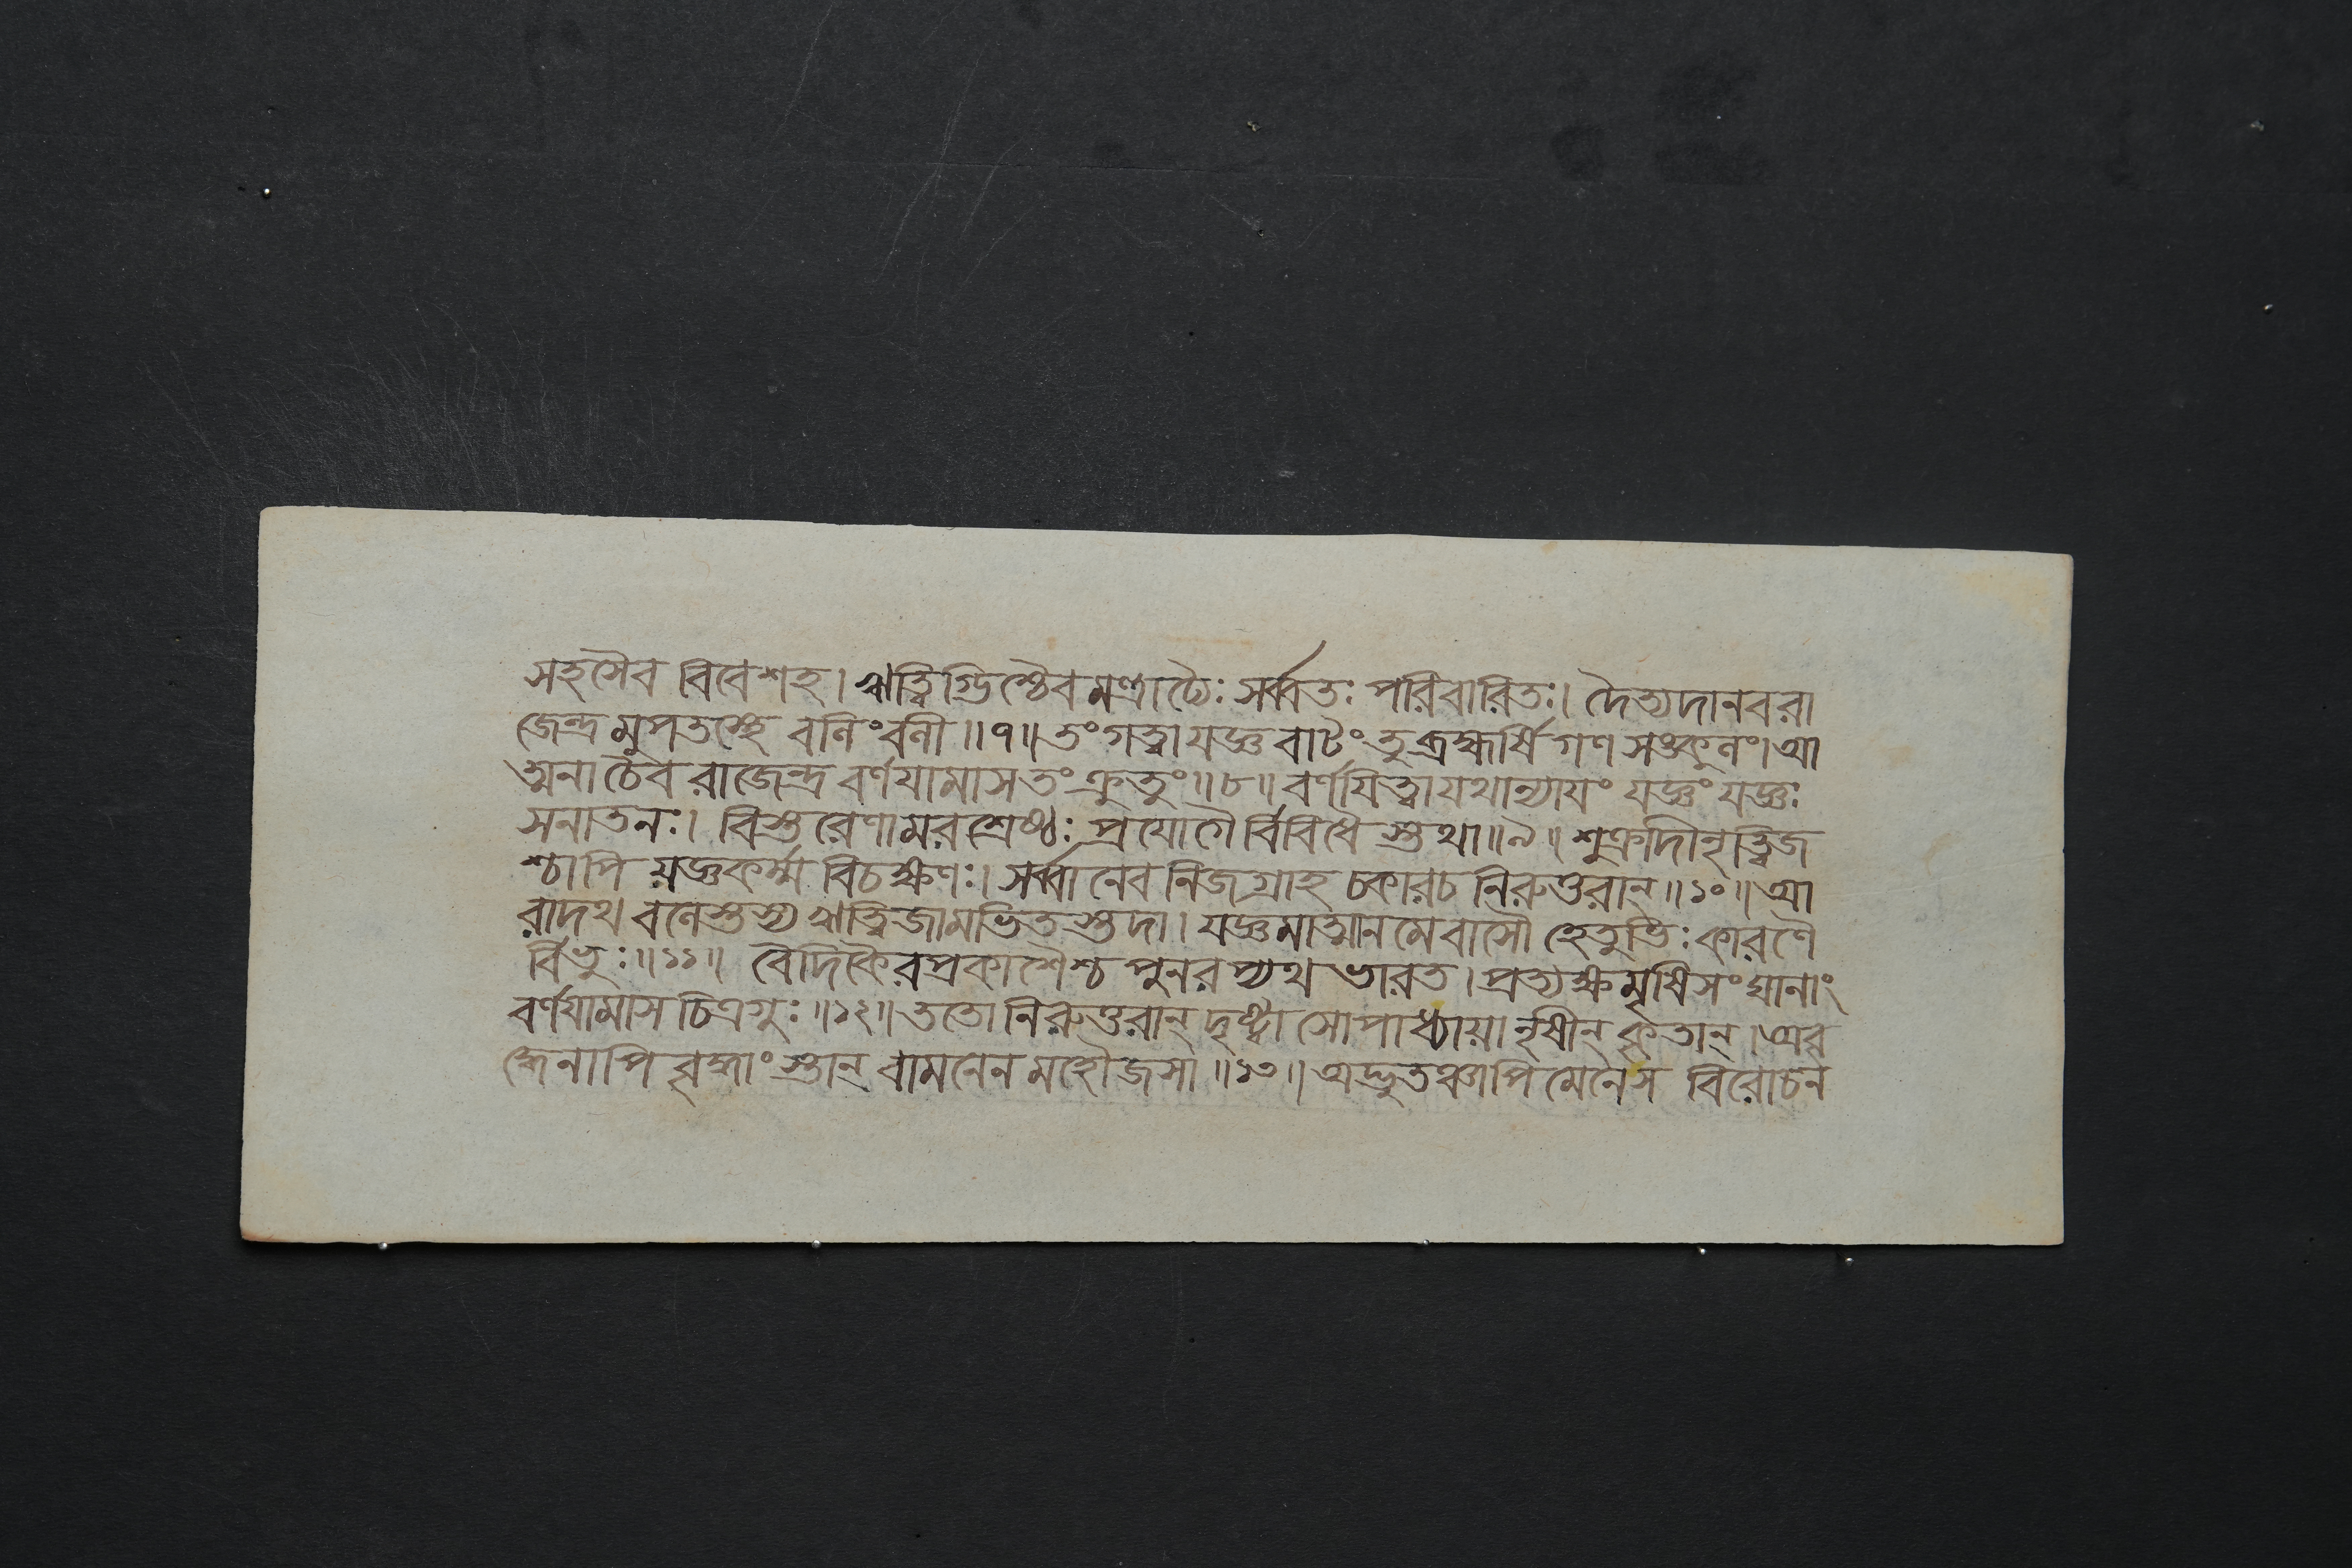 সহসৈব বিবেশহ। ঋত্বিগ্ভিশ্চৈব মন্ত্রাঢ্যৈঃ সর্ব্বতঃ পরিবারিতঃ। দৈত্যদানবরা
জেন্দ্রমুপতস্থে বলিংবলী॥৭॥তংগত্বাযজ্ঞবাটংতুব্রহ্মর্ষিগণসঙ্কুলং।আ
ত্মনাচৈব রাজেন্দ্র বর্ণযামাসতংক্রুতুং॥৮॥বর্ণযিত্বাযথান্যাযং যজ্ঞংযজ্ঞঃ
সনাতনঃ। বিস্তরেণামরশ্রেষ্ঠঃ প্রযোগৈর্বিবিধৈস্তথা॥৯॥শুক্রাদীনৃত্বিজ
শ্চাপি যজ্ঞকর্ম্মবিচক্ষণঃ। সর্ব্বানেবনিজগ্রাহ চকারচনিরুত্তরান্॥১০॥আ
রাদথ বলেস্তস্য ঋত্বিজামভিতস্তদা। যজ্ঞমাত্মানমেবাসৌ হেতুভিঃ কারণৈ
র্বিভুঃ॥১১॥ বৈদিকৈরপ্রকাশৈশ্চ পুনরপ্যথ ভারত।প্রত্যক্ষমৃষিসংঘানাং
বর্ণযামাস চিত্রগুঃ॥১২॥ততোনিরুত্তরান্দৃষ্ট্বা সোপাধ্যাযানৃষীন্কৃতান্।অব্র
হ্মেনাপি বৃহ্মাংস্তান্ বামনেন মহৌজসা॥১৩॥অদ্ভুতঞ্চাপিমেনেস বিরোচন